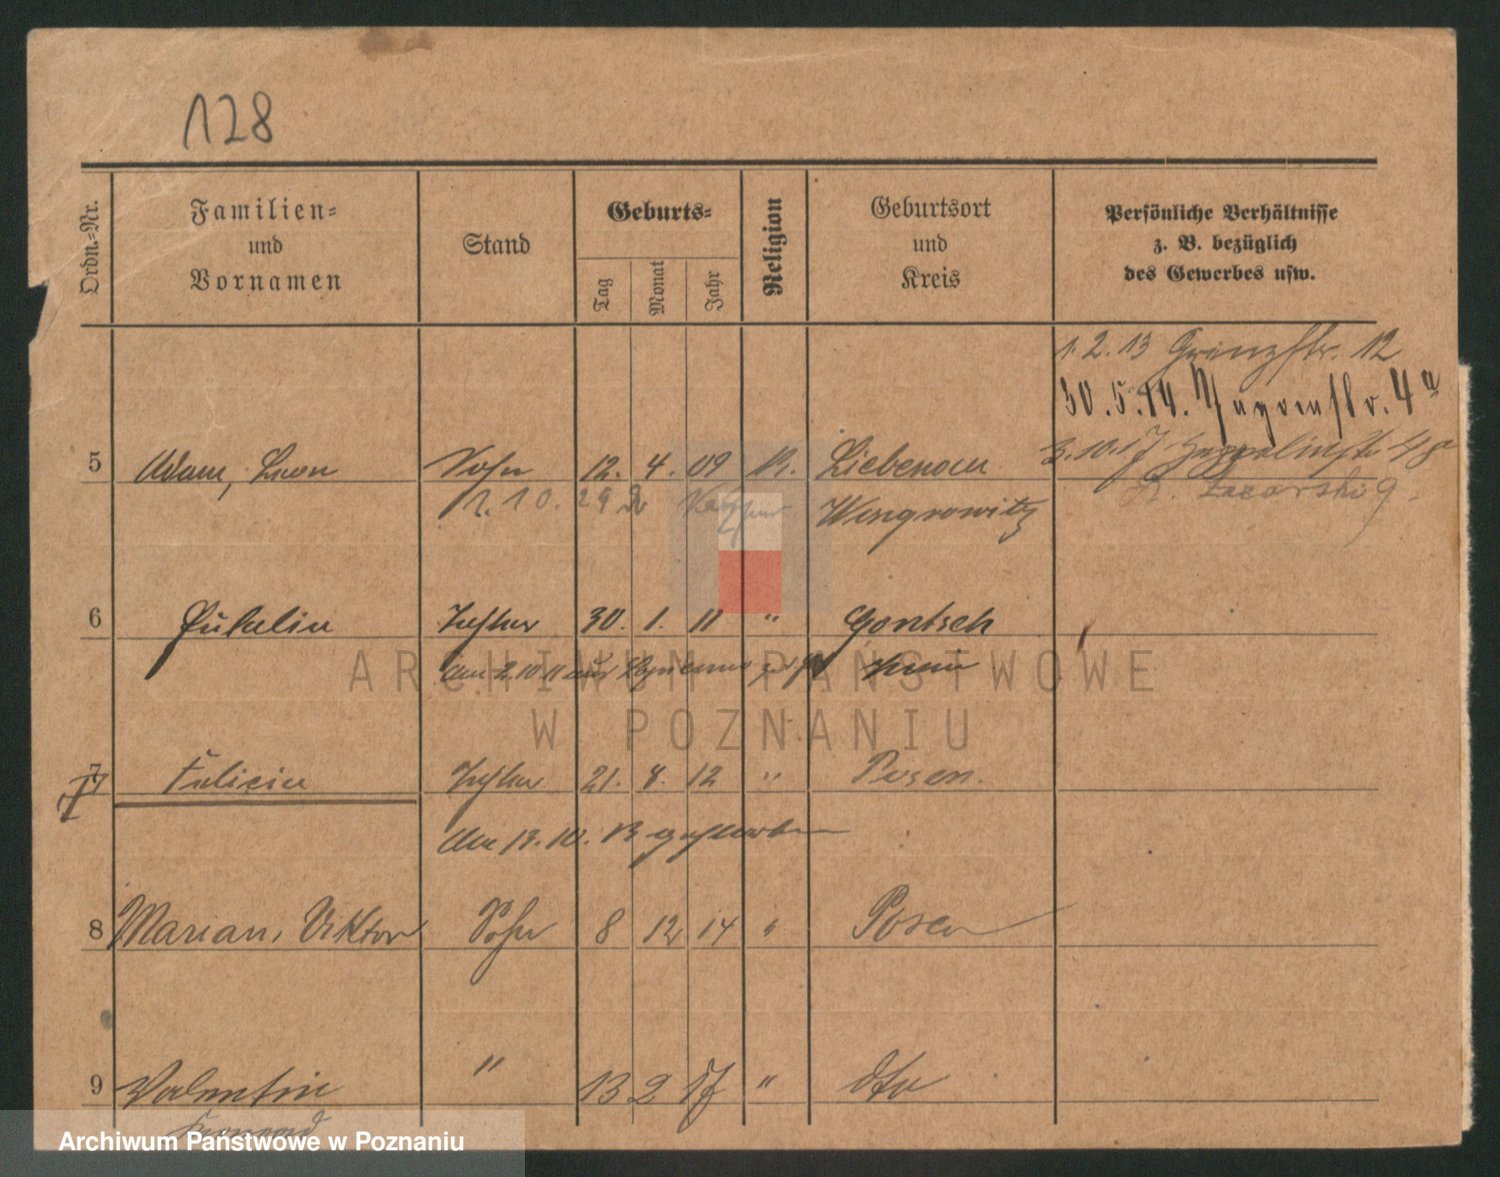 128
Ordn.-Nr.
Familien-
und
Vornamen
Stand
Geburts-
Tag
Monat
Jahr
Religion
Geburtsort
und
Kreis
Persönliche Verhältnisse
z. B. bezüglich
des Gewerbes usw.
1. 2. 13 Grenzstr. 12
30. 5. 14. 4a
5 Adam, Leon Sohn 12. 4. 09 K. Liebenau 3. 10. 17
1. 10. 29 Wongrowitz Lazarski 9.
6 Tochter 30. 1. 11 " Gontsch
Am 2. 10. 11 aus
7 Felicia Tochter 21. 8. 12 " Posen.
Am 13. 10. 13 gestorben
8 Marian, Viktor Sohn 8 12 14 " Posen
9 Valentin " 13 2 17 " dto
ARCHIWUM PAŃSTWOWE
W POZNANIU
Archiwum Państwowe w Poznaniu